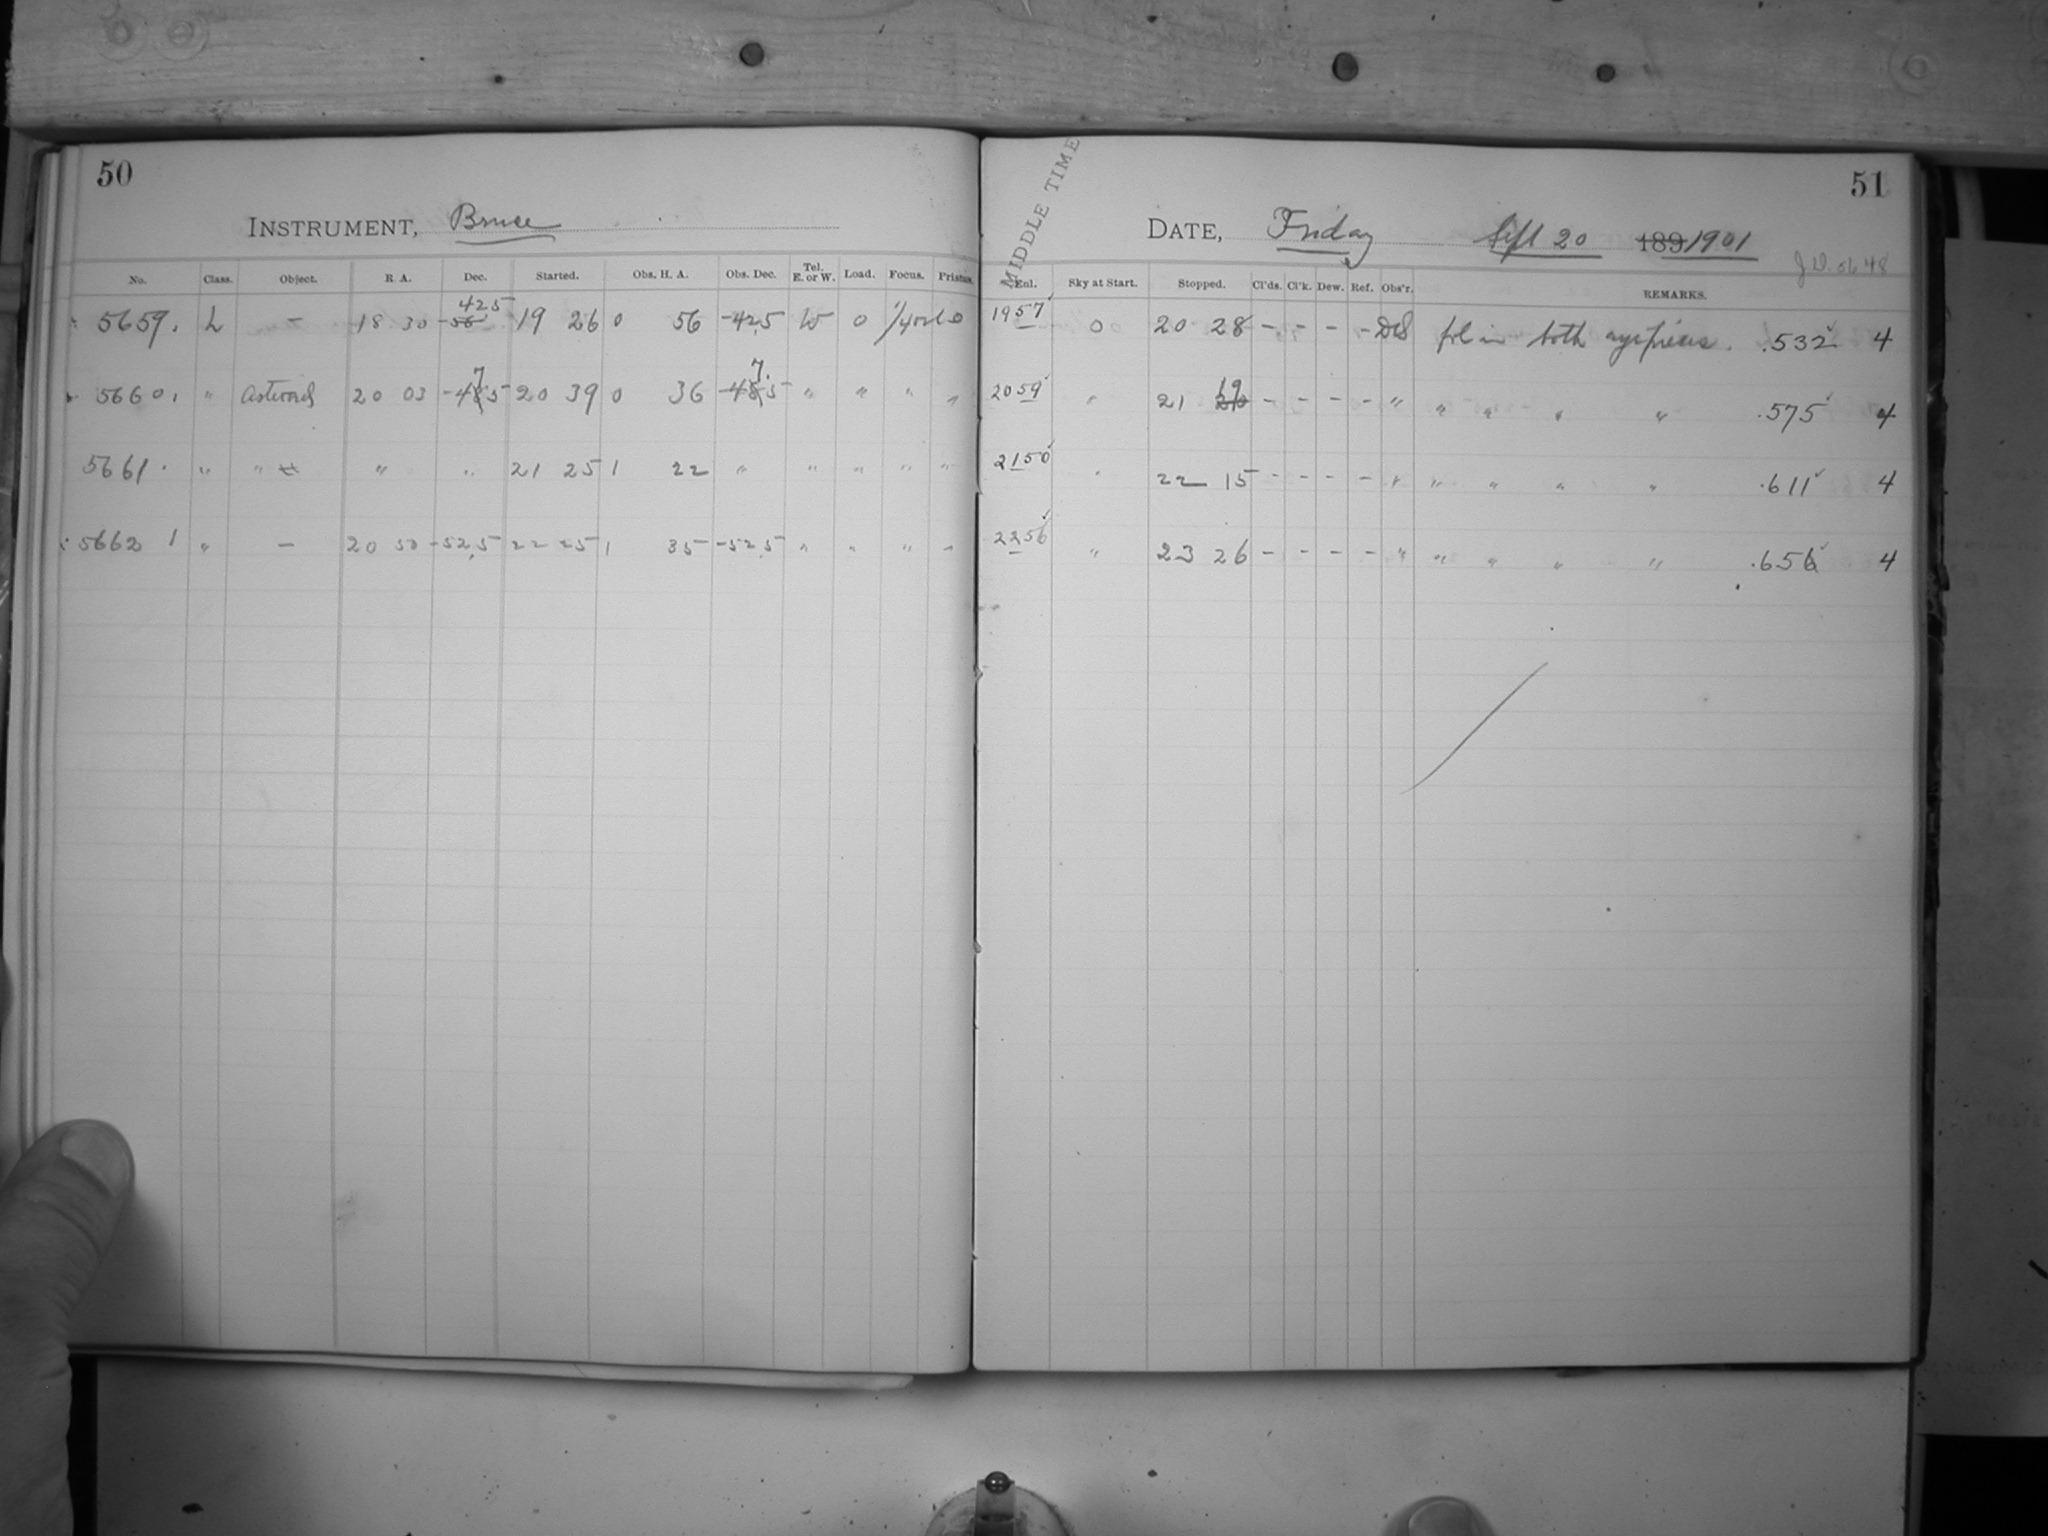 50
INSTRUMENT, Bruce
No. Class. Object. R. A. Dec. Started. Obs. H. A. Obs. Dec. Tel. E. or W. Load. Focus. Prisms.
425
5659. L – 18 30 -56 19 26 0 56 -42.5 W 0 0
7 7.
5660. " Asteroid 20 03 -485 20 39 0 36 -485 " " " "
5661. " " " " 21 25 1 22 " " " " "
5662 1 " – 20 50 -52.5 22 25 1 35 -52.5 " " " "
51
MIDDLE TIME
DATE, Friday Sept 20 189 1901
J.D. 5648
Enl. Sky at Start. Stopped. Cl'ds. Cl'k. Dew. Ref. Obs'r. REMARKS.
1957 0 20 28 – – – – fol in both eyepieces. .532 4
19
2059 " 21 20 – – – – " " " " " .575 4
2150 " 22 15 – – – – " " " " " .611 4
2256 " 23 26 – – – – " " " " " .656 4